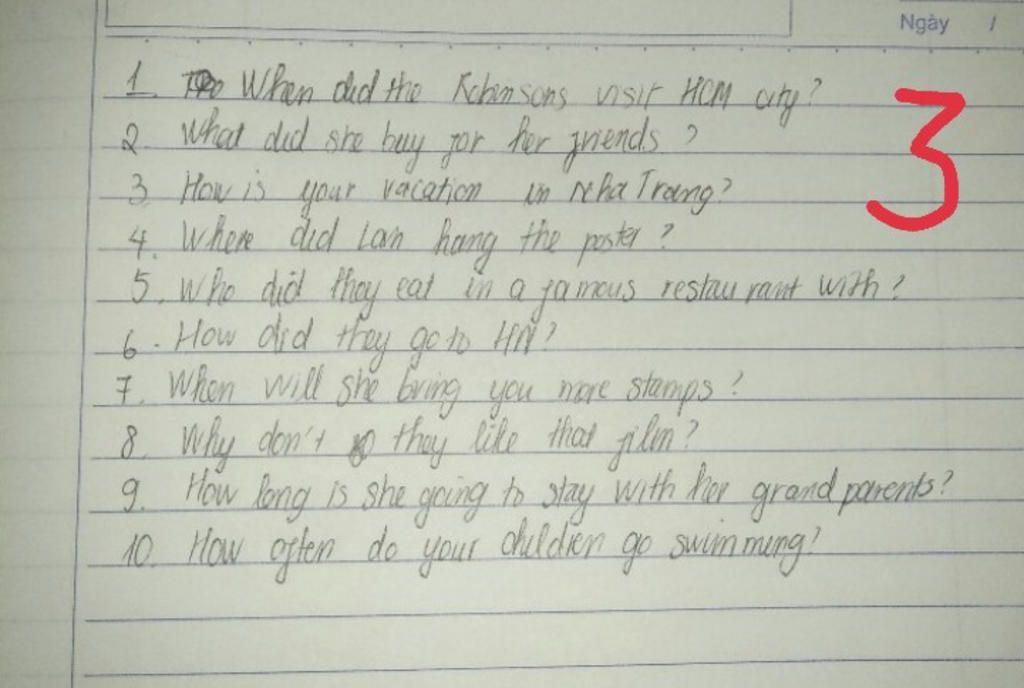 Ngày /
3
1. When did the Robinsons visit HCM city?
2. What did she buy for her friends?
3 How is your vacation in Nha Trang?
4. Where did Lan hang the poster?
5. Who did they eat in a famous restaurant with?
6. How did they go to HN?
7. When will she bring you more stamps?
8. Why don't they like that film?
9. How long is she going to stay with her grand parents?
10. How often do your children go swimming?